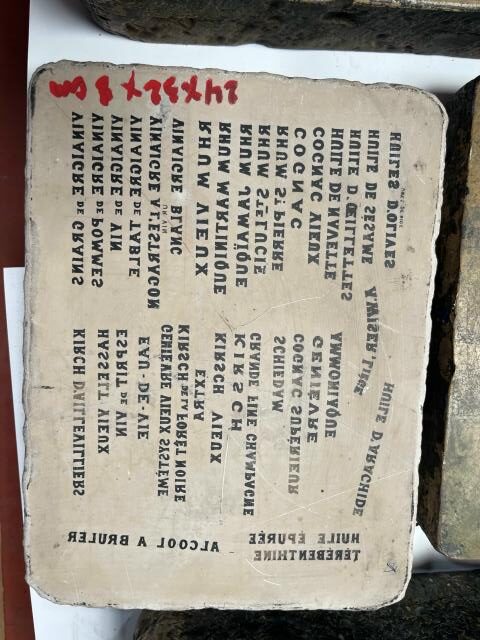 24X32X8 cm
HUILES D'OLIVES
HUILE DE SÉSAME
HUILE D'ŒILLETTES
HUILE DE NAVETTE
COGNAC VIEUX
COGNAC
RHUM ST PIERRE
RHUM STE LUCIE
RHUM JAMAÏQUE
RHUM MARTINIQUE
RHUM VIEUX
VINAIGRE BLANC
VINAIGRE A L'ESTRAGON
VINAIGRE DE TABLE
VINAIGRE DE VIN
VINAIGRE DE POMMES
VINAIGRE DE GRAINS
HUILE D'ARACHIDE
AMMONIAQUE
GENIÈVRE
COGNAC SUPÉRIEUR
SCHIEDAM
GRANDE FINE CHAMPAGNE
KIRSCH
KIRSCH VIEUX
EXTRA
KIRSCH DE LA FORÊT NOIRE
GENIÈVRE VIEUX SYSTÈME
EAU-DE-VIE
ESPRIT DE VIN
HASSELT VIEUX
KIRCH D'AILLEVILLIERS
TÉRÉBENTHINE
HUILE ÉPURÉE
ALCOOL A BRULER